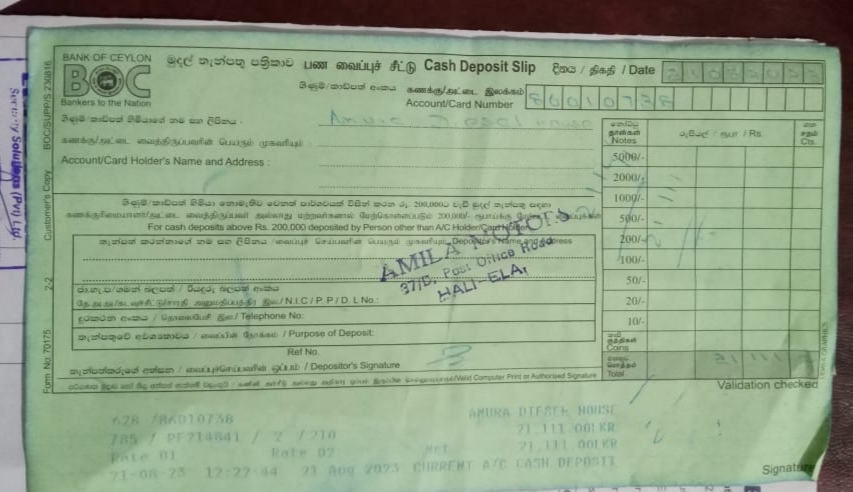 BANK OF CEYLON
BOC
Bankers to the Nation
මුදල් තැන්පතු පත්‍රිකාව பண வைப்புச் சீட்டு Cash Deposit Slip දිනය / திகதி / Date 21082023
ගිණුම්/කාඩ්පත් අංකය கணக்கு/அட்டை இலக்கம்
Account/Card Number 86010738
ගිණුම්/කාඩ්පත් හිමියාගේ නම සහ ලිපිනය : Amura Diesel House
கணக்கு/அட்டை வைத்திருப்பவரின் பெயரும் முகவரியும் :
Account/Card Holder's Name and Address :
නෝට්ටු
தாள்கள்
Notes
රුපියල් / ரூபா / Rs.
ශත
சதம்
Cts.
5000/-
2000/-
1000/-
500/-
200/-
100/-
50/-
20/-
10/-
காசி
Coins
Total 21 111
ගිණුම්/කාඩ්පත් හිමියා නොමැතිව වෙනත් පාර්ශවයක් විසින් කරන රු. 200,000ට වැඩි මුදල් තැන්පතු සඳහා
For cash deposits above Rs. 200,000 deposited by Person other than A/C Holder/Card Holder
තැන්පත් කරන්නාගේ නම සහ ලිපිනය / வைப்புச் செய்பவரின் பெயரும் முகவரியும் / Depositor's Name and Address
AMILA MOTORS
37/D, Post Office Road
HALI-ELA,
ජා.හැ.ප/ගමන් බලපත්‍ර / රියදුරු බලපත්‍ර අංකය
/ N.I.C / P.P / D.L No.:
දුරකථන අංකය / தொலைபேசி இல./ Telephone No:
තැන්පතුවේ අවශ්‍යතාවය / வைப்பின் நோக்கம் / Purpose of Deposit:
Ref No.
තැන්පත්කරුගේ අත්සන / வைப்புச்செய்பவரின் ஒப்பம் / Depositor's Signature
Valid Computer Print or Authorised Signature
Validation checked
Signature
628 /86010738 AMURA DIESEL HOUSE
785 / PF214841 / 2 /210 21,111.00LKR
Rate 01 Rate 02 Net 21,111.00LKR
21-08-23 12:22:44 21 Aug 2023 CURRENT A/C CASH DEPOSIT
Form No. 70175 2-2 Customer's Copy BOC/SUPP/S 230816
Security Solutions (Pvt) Ltd.